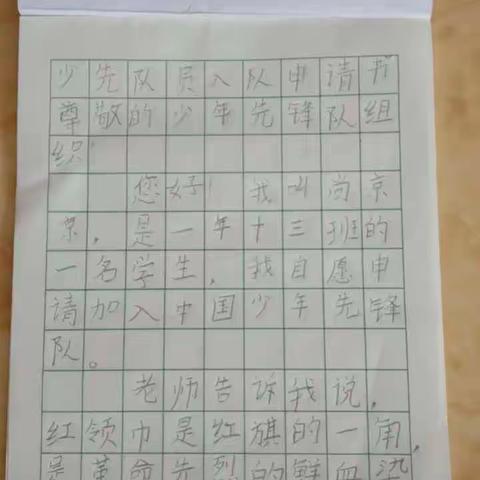 少先队员入队申请书
尊敬的少年先锋队组
织!
您好!我叫尚京
京,是一年十三班的
一名学生,我自愿申
请加入中国少年先锋
队。
老师告诉我说,
红领巾是红旗的一角,
是革命先烈的鲜血染